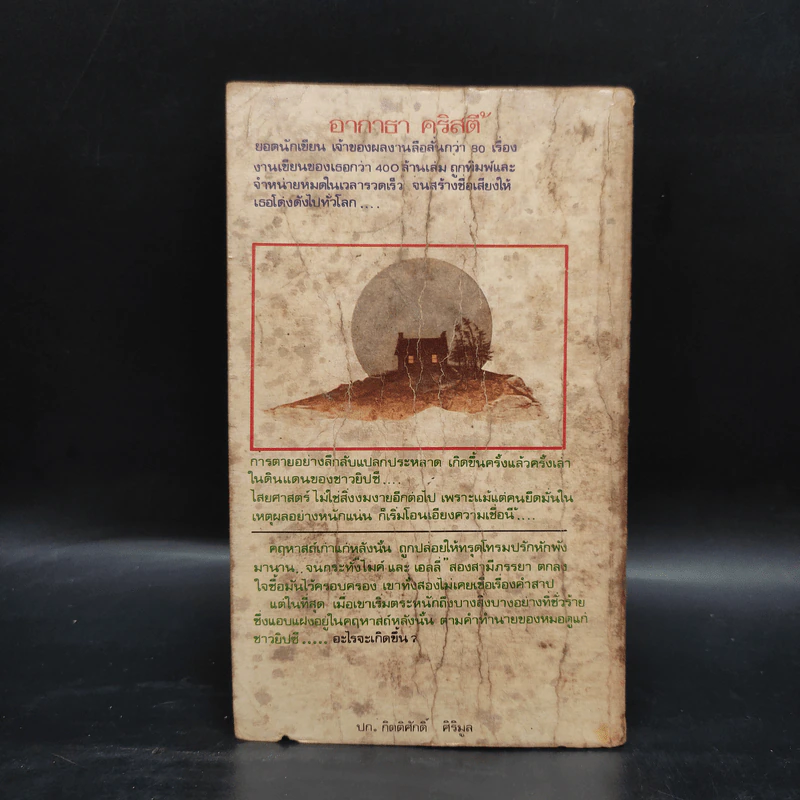 อากาธา คริสตี้
ยอดนักเขียน เจ้าของผลงานลือลั่นกว่า 80 เรื่อง
งานเขียนของเธอกว่า 400 ล้านเล่ม ถูกพิมพ์และ
จำหน่ายหมดในเวลารวดเร็ว จนสร้างชื่อเสียงให้
เธอโด่งดังไปทั่วโลก ....
การตายอย่างลึกลับแปลกประหลาด เกิดขึ้นครั้งแล้วครั้งเล่า
ในดินแดนของชาวยิปซี ....
ไสยศาสตร์ ไม่ใช่สิ่งงมงายอีกต่อไป เพราะแม้แต่คนยึดมั่นใน
เหตุผลอย่างหนักแน่น ก็เริ่มโอนเอียงความเชื่อนี้ ....
คฤหาสถ์เก่าแก่หลังนั้น ถูกปล่อยให้ทรุดโทรมปรักหักพัง
มานาน.. จนกระทั่งไมค์ และ เอลลี่ สองสามีภรรยา ตกลง
ใจซื้อมันไว้ครอบครอง เขาทั้งสองไม่เคยเชื่อเรื่องคำสาป
แต่ในที่สุด เมื่อเขาเริ่มตระหนักถึงบางสิ่งบางอย่างที่ชั่วร้าย
ซึ่งแอบแฝงอยู่ในคฤหาสถ์หลังนั้น ตามคำทำนายของหมอดูแก่
ชาวยิปซี ..... อะไรจะเกิดขึ้น ?
ปก. กิตติศักดิ์ ศิริมูล